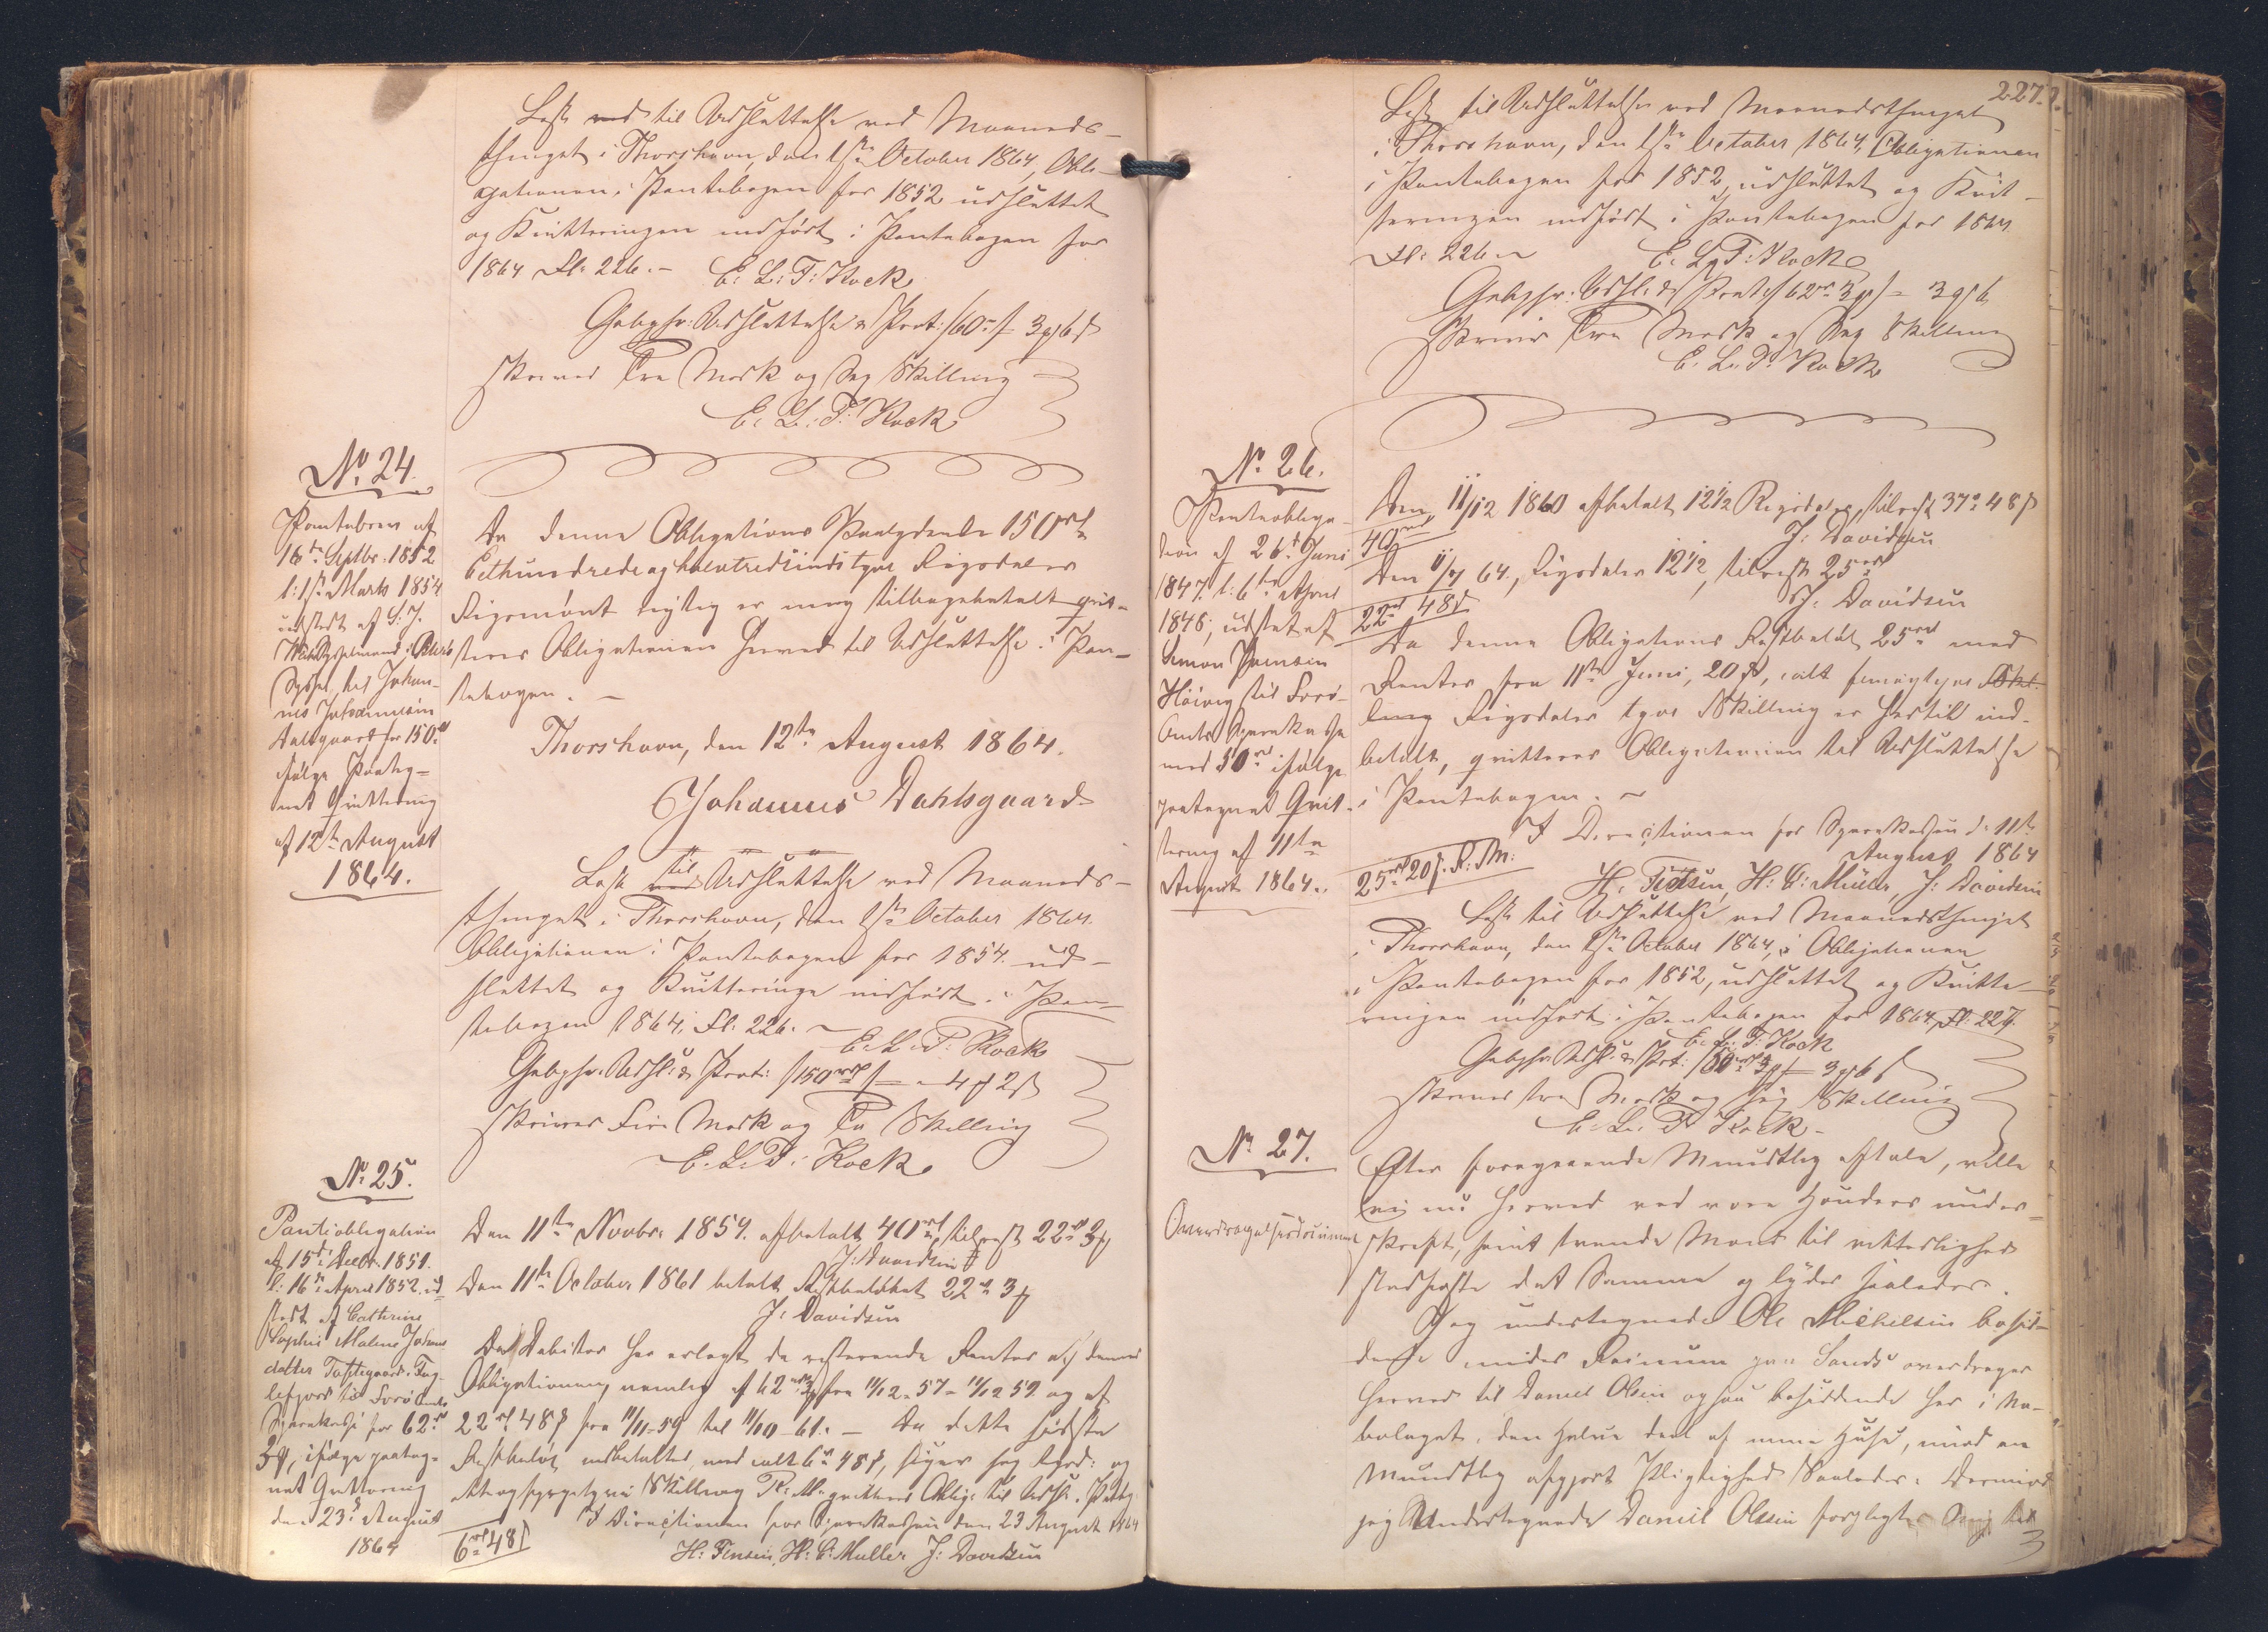 Læst ved til Udslettelse ved Maaneds-
thinget i Thorshavn, den 1ste October 1864, Obli-
gationen i Pantebogen for 1852 udslettet
og Kvitteringen indført i Pantebogen for
1864 Fl: 226.-
E: L: T: Kock
Gebyhr: Udslettelse & Prot: /60 rd/ 3 ʒ 6 s
skriver Tre Mark og Sex Skilling
E: L: T: Kock
No. 24.
Pantebrev af
16de Septbr: 1852
l: 1ste Marts 1854
udstedt af
Sysselmand i
Syssel, til Johan-
nes Johannesen
Dalsgaard for 150 rd
ifølge Paateg-
net Qvittering
af 12te August
1864.
Da denne Obligations Paalydende 150 rd
Ethundrede og halvtredsindstyve Rigsdaler
Rigsmønt rigtig er mig tilbagebetalt qvit-
teres Obligationen herved til Udslettelse i Pan-
tebogen. -
Thorshavn, den 12te August 1864.
Johannes Dahlsgaard
Læst ved til Udslettelse ved Maaneds-
thinget i Thorshavn, den 1ste October 1864.
Obligationen i Pantebogen for 1854 ud-
slettet og Kvitteringe indført i Pan-
tebogen 1864, Fl: 226. -
E: L: T: Kock
Gebyhr: Udsl: & Prot: /150 rd/ - 4 ʒ 2 s
skriver Fire Mark og To Skilling
E. L. T: Kock
No. 25.
Pantiobligation
af 15d Decbr. 1851.
l: 16de April 1852. ud-
stedt af Cathrine
Sophie Malene Johans
datter Toftegaard, Fug-
lefjord til Færø Amts
Sparekasse for 62 rd
3 ʒ, ifølge paateg-
net Qvittering
den 23d August
1864
Den 11te Novbr: 1859. afbetalt 40 rd, tilrest 22 rd 3 ʒ
J: Davidsen
Den 11te October 1861 betalt Restbeløbet 22 rd 3 ʒ
J: Davidsen
Da Debitor har erlagt de resterende Renter af denne
Obligationen, nemlig af 62 rd 3 ʒ fra 11/12 57 - 11/12 59 og af
22 rd 48 s fra 11/11 59 til 11/10 61. - Da dette sidste
Restbeløb indbetaltes, med ialt 6 rd 48 s, siger sex Rgsd: og
otteogfyrgetyve Skilling R: M. qvitteres Oblig: til Udsl: i Pantbg
6 rd 48 s
I Directionen for Sparekassen den 23 August 1864
H: Finsen, H: C: Müller J: Davidsen
227.
Læst til Udslettelse ved Maanedsthinget
i Thorshavn, den 1ste October 1864, Obligationen
i Pantebogen for 1852, udslettet og Kvit-
teringen indført i Pantebogen for 1864
Fl: 226.
E. L. T: Kock
Gebyhr: Udsl: & Prot: /62 rd 3 ʒ/ - 3 ʒ 6 s
skriver Tre Mark og Sex Skilling
E. L. T. Kock
No. 26.
Panteobliga-
tion af 26d Juni
1847. l: 6te April
1848; udstedt af
Simon
Høivig til Færø
Amts Sparekasse
med 50 rd ifølge
paategnet Qvit-
tering af 11te
August 1864..
Den 11/12 1860 afbetalt 12 1/2 Rigsdaler, tilrest 37 rd 48 s
40 rd
J: Davidsen
Den 11/7 64., Rigsdaler 12 1/2, tilrest 25 rd
22 rd 48 s
J: Davidsen
Da denne Obligations Restbeløb 25 rd med
Renter fra 11te Juni, 20 s, ialt femogtyve Skil-
ling Rigsdaler tyve Skilling er hertil ind-
betalt, qvitteres Obligationen til Udslettelse
i Pantebogen. -
I Directionen for Sparekassen d: 11te
August 1864
25 rd 20 s. R: M:
H. Finsen, H: C: Müller, J: Davidsen
Læst til Udslettelse ved Maanedsthinget
i Thorshavn, den 1ste October 1864, Obligationen
i Pantebogen for 1852, udslettet og Kvitte-
ringen indført i Pantebogen for 1864, Fl: 227.
E. L. T: Kock
Gebyhr: Udsl: & Prot: /50 rd/ 3 ʒ 6 s
skriver tre Mark og sex Skilling
E. L. T Kock -
No. 27.
Overdragelsesdocument
Efter foregaaende Mundtlig aftale, ville
vi nu herved ved vore Hænders under-
skrift, samt tvende Mænd til vitterlighed
stadfæste det Samme og lyder saaledes.
Jeg undertegnede Ole Michelsen bosid-
dende under Reinum paa Sands overdrager
herved til Daniel Olsen ogsaa bosiddende her i Na-
bolaget, den halve deel af mine Huse, imod en
Mundtlig afgjort Pligtighed Saaledes: Derimod
jeg Undertegnede Daniel Olsen forpligter mig til